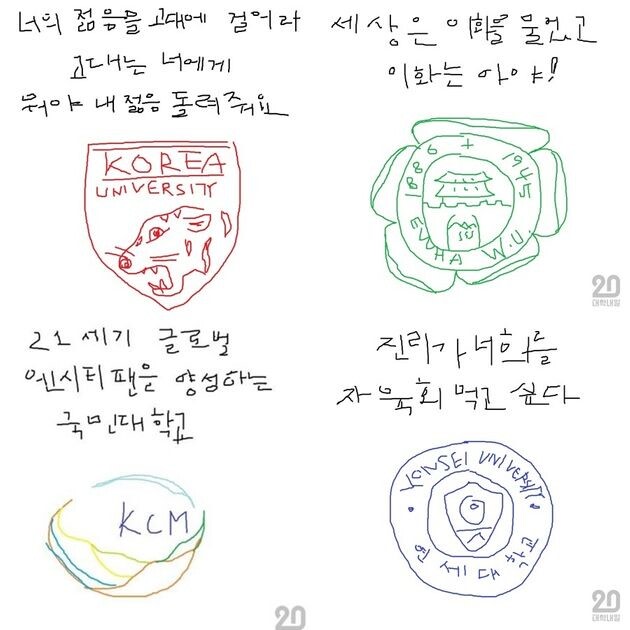 너의 젊음을 고대에 걸어라
고대는 너에게
뭐야 내 젊음 돌려줘요
KOREA
UNIVERSITY
세상은 이화를 물었고
이화는 아야!
1886 + 1945
EWHA W.U.
20
대학내일
21세기 글로벌
엔시티팬을 양성하는
국민대학교
KCM
20
진리가 너희를
자 육회 먹고 싶다
YONSEI UNIVERSITY
연세대학교
20
대학내일